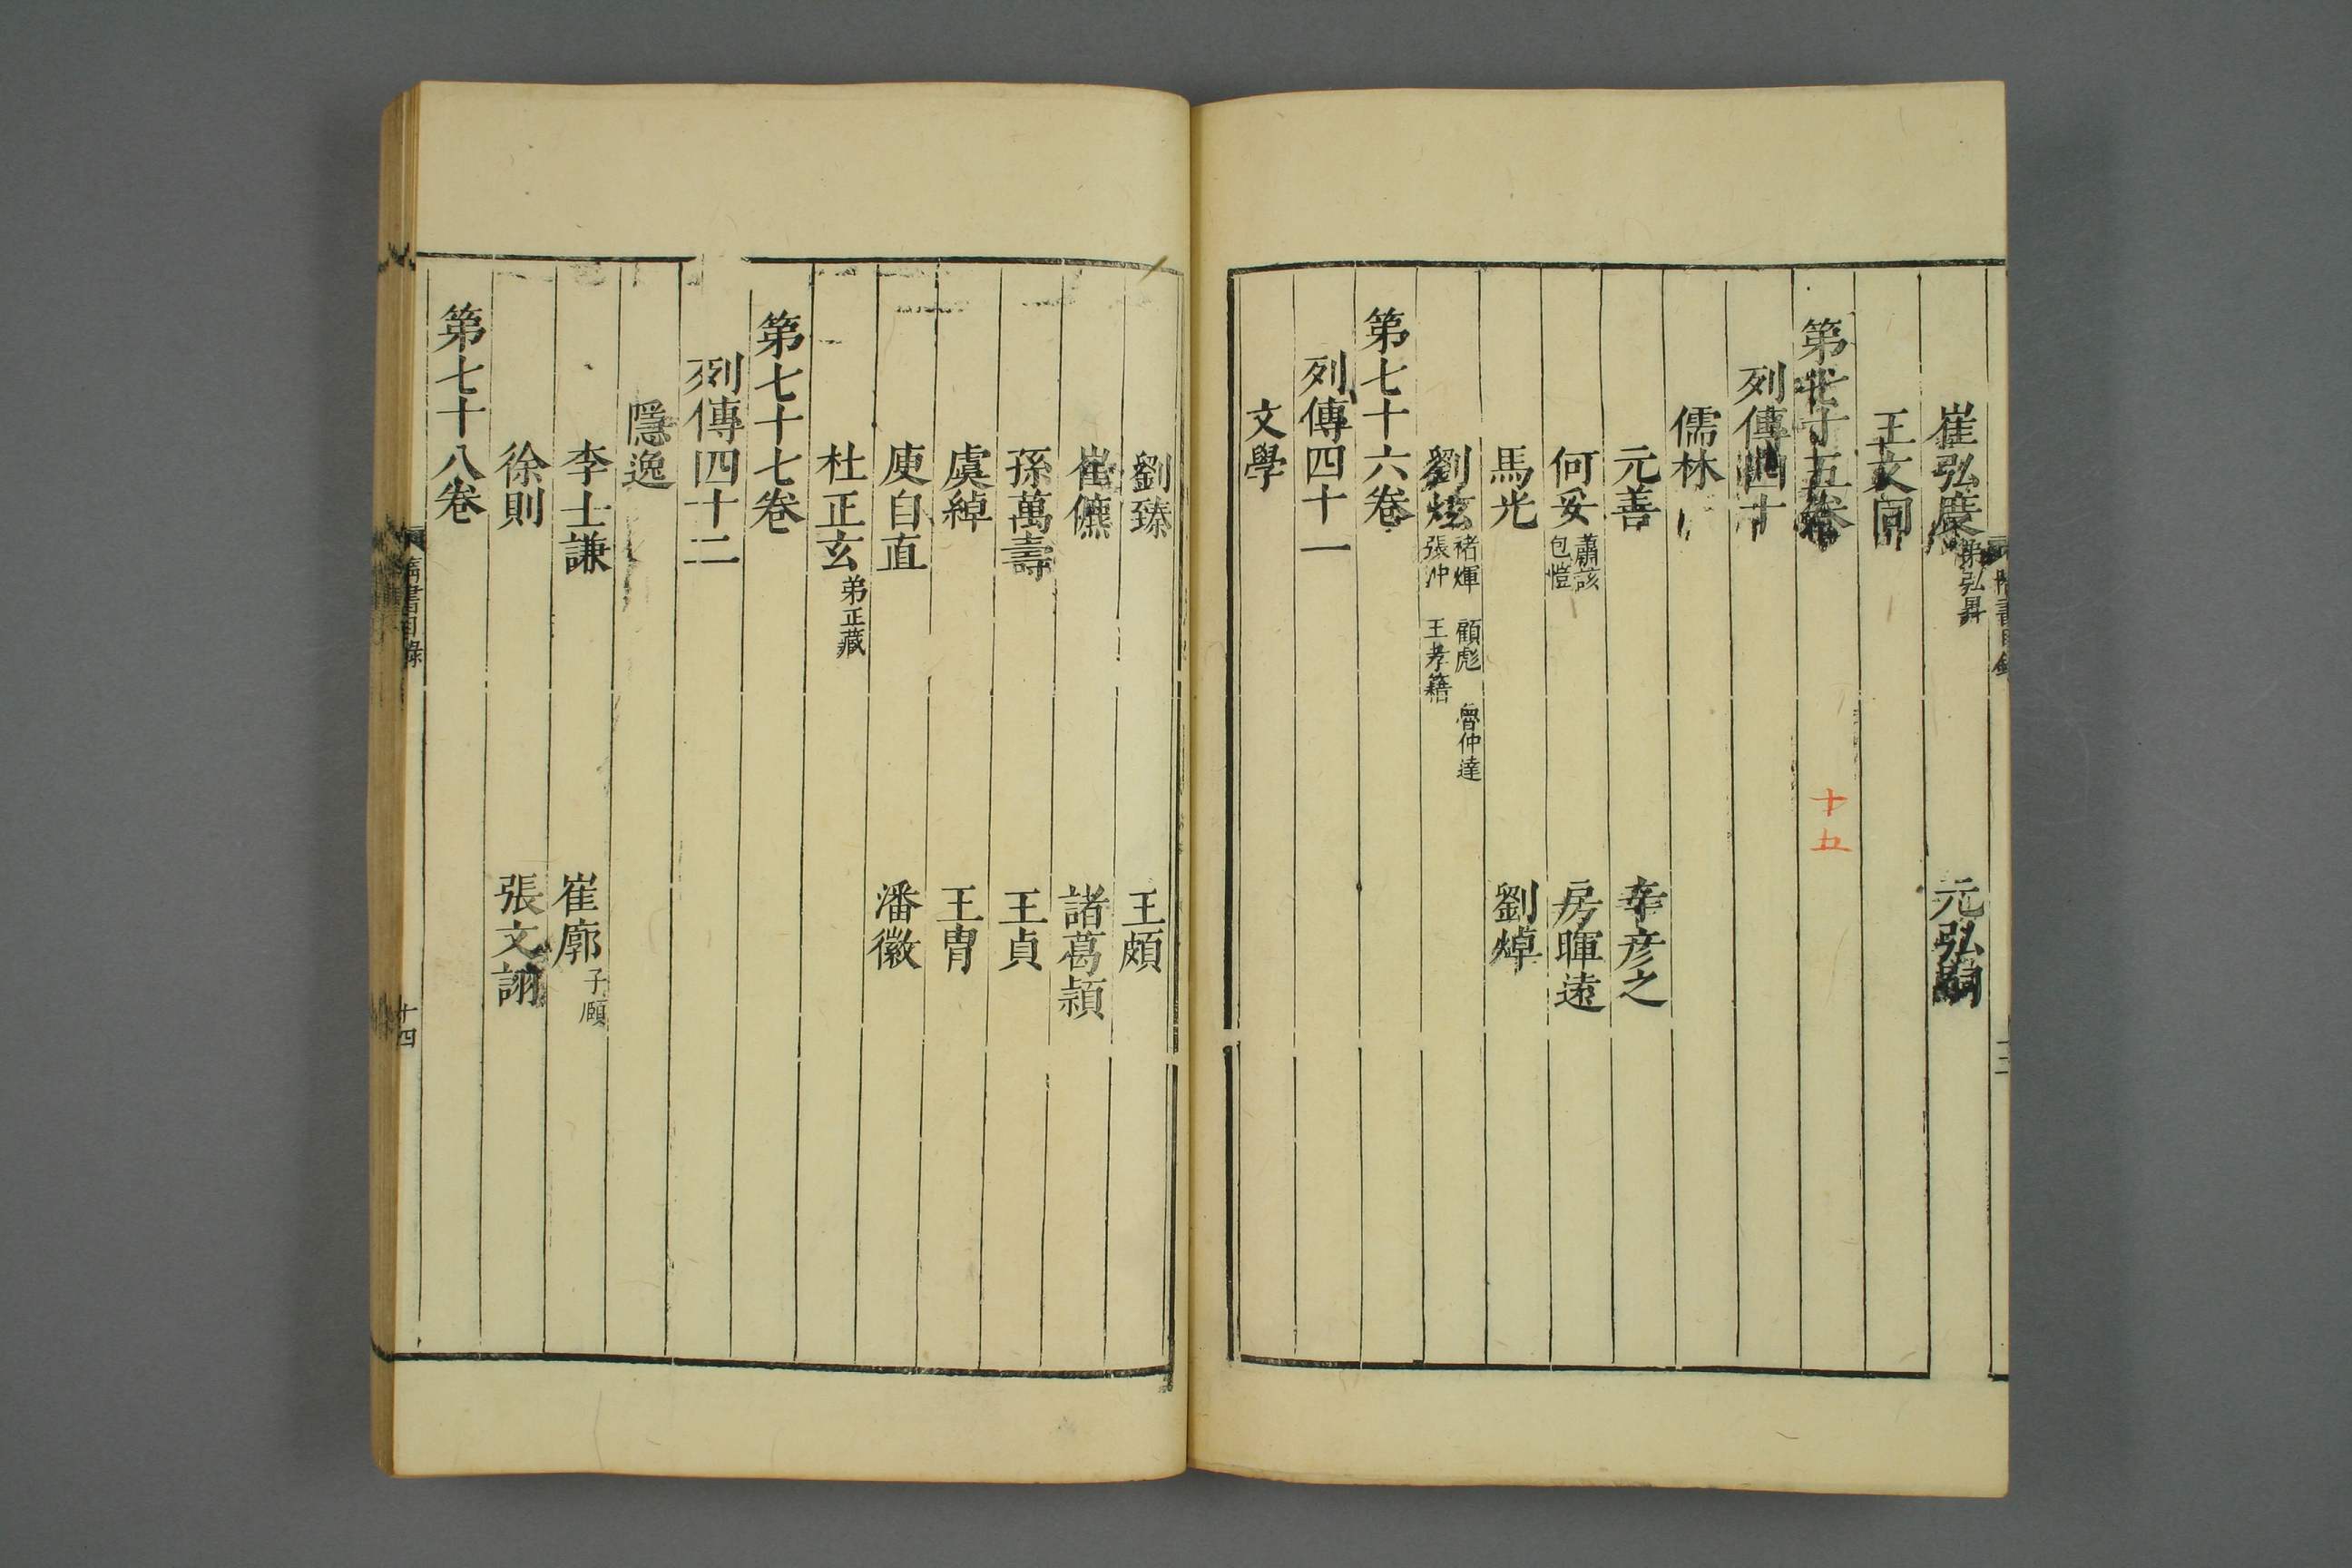 崔弘度弟弘昇 元弘嗣
王文同
第七十五卷
十五
列傳四十
儒林
元善 辛彦之
何妥蕭該包愷 房暉遠
馬光 劉焯
劉炫褚煇 顧彪 魯仲達張冲 王孝籍
第七十六卷
列傳四十一
文學
劉臻 王頗
崔儦 諸葛頴
孫萬壽 王貞
虞綽 王胄
庾自直 潘徽
杜正玄弟正藏
第七十七卷
列傳四十二
隱逸
李士謙 崔廓子賾
徐則 張文詡
第七十八卷
隋書目錄 十四